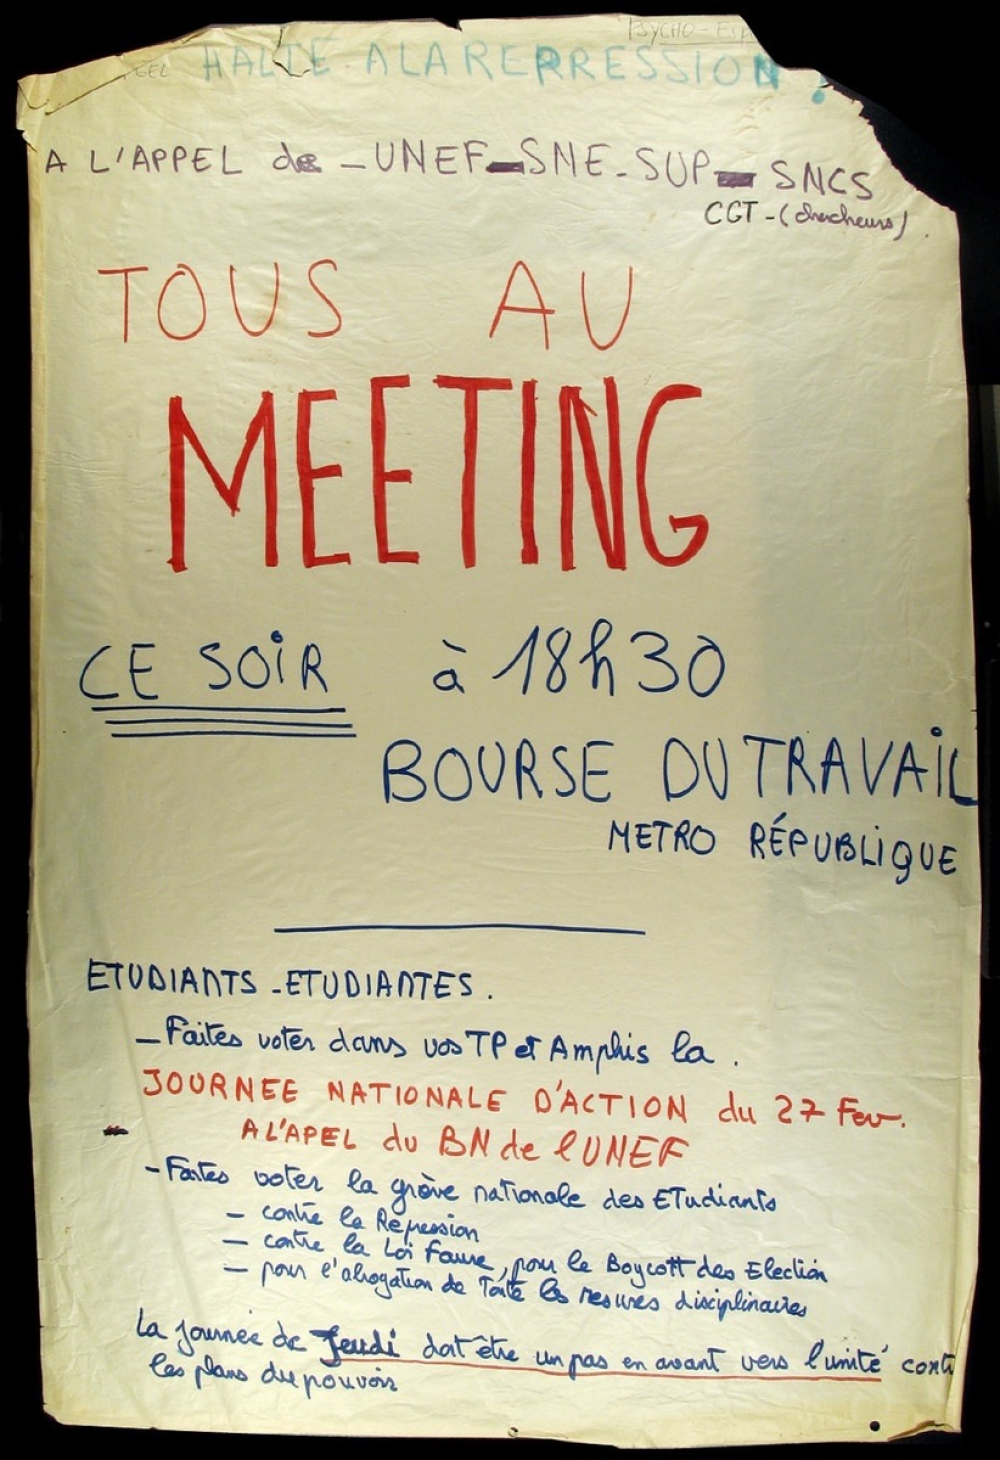 PSYCHO-Exp
CEL HALTE A LA REPRESSION !
A L'APPEL de - UNEF - SNE-SUP - SNCS
CGT - (chercheurs).
TOUS AU
MEETING
CE SOIR à 18h30
BOURSE DU TRAVAIL
METRO RÉPUBLIQUE
ETUDIANTS - ETUDIANTES.
- Faites voter dans vos TP et Amphis la.
JOURNEE NATIONALE D'ACTION du 27 Fev.
A L'APEL du BN de l'UNEF
- Faites voter la grève nationale des ETudiants
- contre la Répression
- contre la Loi Faure, pour le Boycott des Election
- pour l'abrogation de Toute les mesures disciplinaires
La journée de Jeudi doit être un pas en avant vers l'unité contr
les plans du pouvoir